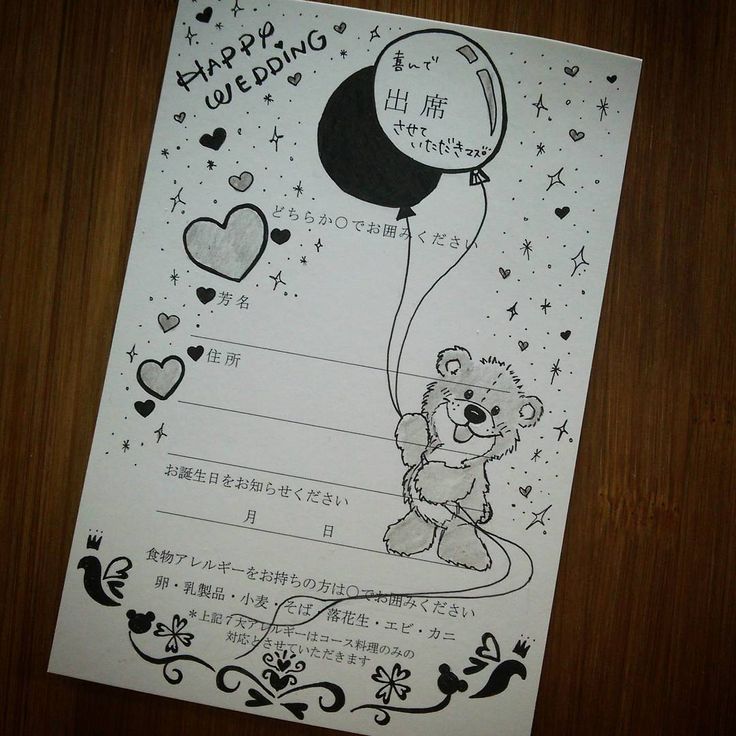 HAPPY
WEDDING
喜んで
出席
させて
いただきマス。
どちらか〇でお囲みください
芳名
住所
お誕生日をお知らせください
月 日
食物アレルギーをお持ちの方は〇でお囲みください
卵・乳製品・小麦・そば・落花生・エビ・カニ
＊上記７大アレルギーはコース料理のみの
対応とさせていただきます